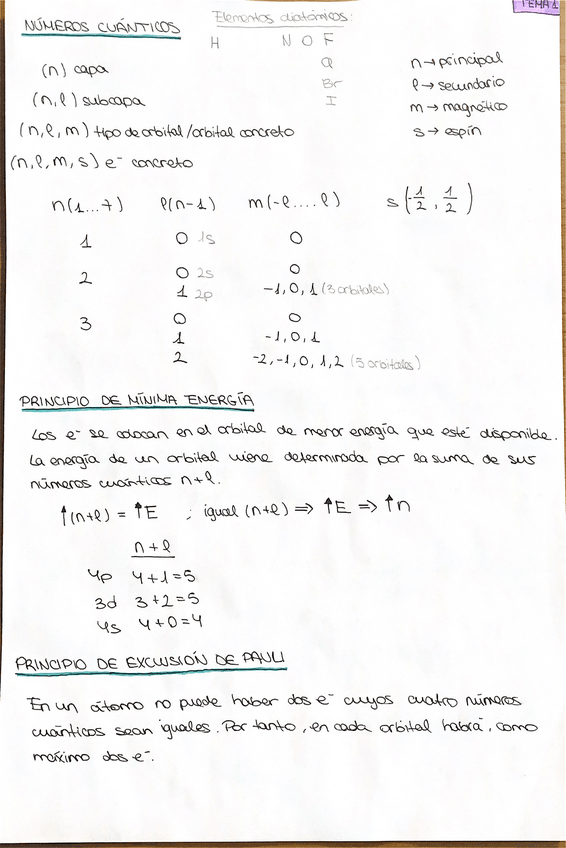 TEMA 1
NÚMEROS CUÁNTICOS
Elementos diatómicos:
H N O F
Cl
Br
I
(n) capa
(n, l) subcapa
(n, l, m) tipo de orbital/orbital concreto
(n, l, m, s) e⁻ concreto
n → principal
l → secundario
m → magnético
s → espín
n (1...7) l (n-1) m (-l....l) s (-1/2, 1/2)
1 0 1s 0
2 0 2s 0
1 2p -1, 0, 1 (3 orbitales)
3 0 0
1 -1, 0, 1
2 -2, -1, 0, 1, 2 (5 orbitales)
PRINCIPIO DE MÍNIMA ENERGÍA
Los e⁻ se colocan en el orbital de menor energía que esté disponible.
La energía de un orbital viene determinada por la suma de sus
números cuánticos n+l.
↑(n+l) = ↑E ; igual (n+l) ⇒ ↑E ⇒ ↑n
n+l
4p 4+1=5
3d 3+2=5
4s 4+0=4
PRINCIPIO DE EXCLUSIÓN DE PAULI
En un átomo no puede haber dos e⁻ cuyos cuatro números
cuánticos sean iguales. Por tanto, en cada orbital habrá, como
máximo dos e⁻.